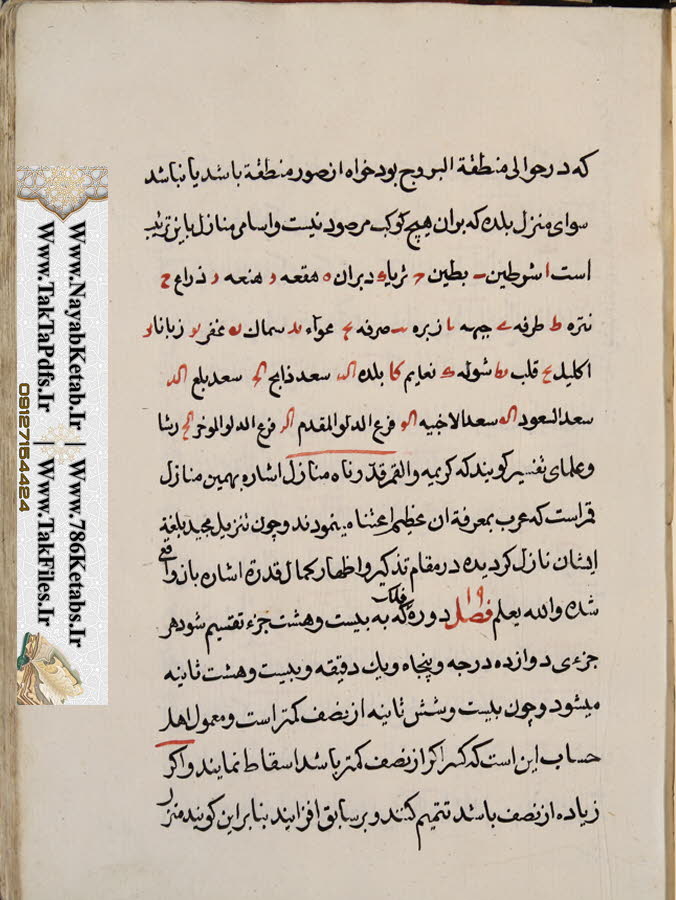 که در حوالی منطقة البروج بود خواه از صور منطقة باشد یا نباشد
سوای منزل بلده که بران هیچ کوکب مرصود نیست و اسامی منازل باین ترتیب
است ا شرطین ب بطین ج ثریا د دبران ه هقعه و هنعه ز ذراع ح
نثره ط طرفه ی جبهه یا زبره یب صرفه یج عواء ید سماک یه غفر یو زبانا یز
اکلیل یح قلب یط شوله ک نعایم کا بلده کب سعد ذابح کج سعد بلع کد
سعد السعود که سعد الاخبیه کو فرغ الدلو المقدم کز فرغ الدلو الموخر کح رشا
و علمای تفسیر کویند که کریمه و القمر قدرناه منازل اشاره بهمین منازل
قمر است که عرب بمعرفه ان عظیم اعتناء مینمودند و چون تنزیل مجید بلغة
ایشان نازل کردیده در مقام تذکیر و اظهار کمال قدرة اشاره باز واقع
شده والله یعلم فصل ۱۹ دوره فلک که به بیست و هشت جزء تقسیم شود هر
جزءی دوازده درجه و پنجاه و یک دقیقه و بیست و هشت ثانیه
میشود و چون بیست و شش ثانیه از نصف کمتر است و معمول اهل
حساب این است که کسر اکر از نصف کمتر باشد اسقاط نمایند و اکر
زیاده از نصف باشد تتمیم کنند و بر سابق افزایند بنابراین کویند منزل
Www.NayabKetab.Ir | Www.786Ketabs.Ir
Www.TakTaPdfs.Ir | Www.TakFiles.Ir
09127154424